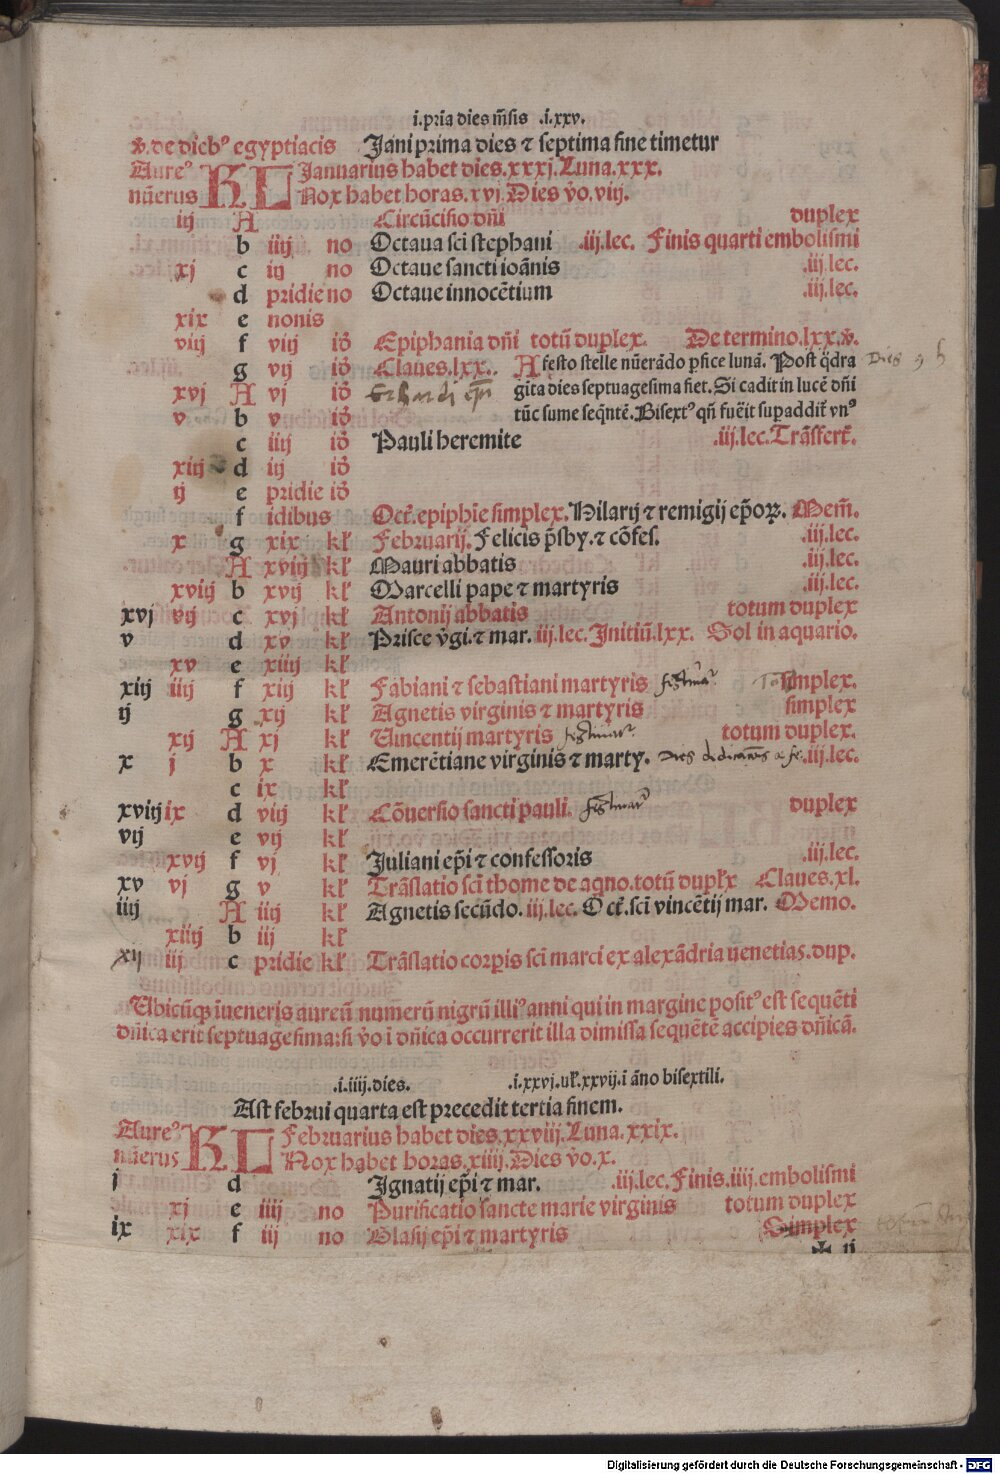 i.pria dies m̄sis .i.xxv.
v̾. de dieb⁹ egyptiacis Jani prima dies ⁊ septima fine timetur
Aure⁹ KL Januarius habet dies.xxxj.Luna.xxx.
nūerus Nox habet horas.xvj.Dies v̾o.viij.
iij A Circūcisio dn̄i duplex
b iiij no Octaua sc̄i stephani .iij.lec. Finis quarti embolismi
xj c iij no Octaue sancti ioānis .iij.lec.
d pridie no Octaue innocētium .iij.lec.
xix e nonis
viij f viij id̾ Epiphania dn̄i totū duplex. De termino.lxx.v̾.
g vij id̾ Claues.lxx.. A festo stelle nūerādo ꝑfice lunā. Post q̄dra
xvj A vj id̾ Erhardi ep̄i gita dies septuagesima fiet. Si cadit in lucē dn̄i
v b v id̾ tūc sume seq̄ntē. Bisext⁹ qn̄ fuēit suꝑaddit̾ vn⁹
c iiij id̾ Pauli heremite .iij.lec.Trāsfert̾.
xiij d iij id̾
ij e pridie id̾
f idibus Oct̾.epiphīe simplex. Hilarij ⁊ remigij ep̄oꝝ. Mem̄.
x g xix kł Februarij. Felicis p̄sby.⁊ cōfes. .iij.lec.
A xviij kł Mauri abbatis .iij.lec.
xviij b xvij kł Marcelli pape ⁊ martyris .iij.lec.
xvj vij c xvj kł Antonij abbatis totum duplex
v d xv kł Prisce v̾gi.⁊ mar. iij.lec.Jnitiū.lxx. Sol in aquario.
xv e xiiij kł
xiij iiij f xiij kł Fabiani ⁊ sebastiani martyris simplex.
ij g xij kł Agnetis virginis ⁊ martyris simplex
xij A xj kł Uincentij martyris totum duplex.
x j b x kł Emerētiane virginis ⁊ marty. .iij.lec.
c ix kł
xviij ix d viij kł Cōuersio sancti pauli. duplex
vij e vij kł
xvij f vj kł Juliani ep̄i ⁊ confessoris .iij.lec.
xv vj g v kł Trāslatio sc̄i thome de aqno.totū dupłx Claues.xl.
iiij A iiij kł Agnetis secūdo. iij.lec. Oct̾.sc̄i vincētij mar. Memo.
xiiij b iij kł
xij iij c pridie kł Trāslatio corꝑis sc̄i marci ex alexādria uenetias.dup.
Ubicūqꝫ īueneris aureū numerū nigrū illi⁹ anni qui in margine posit⁹ est sequēti
dn̄ica erit septuagesima: si v̾o ī dn̄ica occurrerit illa dimissa sequētē accipies dn̄icā.
.i.iiij.dies. .i.xxvj.uł.xxvij.ī āno bisextili.
Ast februi quarta est precedit tertia finem.
Aure⁹ KL Februarius habet dies.xxviij.Luna.xxix.
nūerus Nox habet horas.xiiij.Dies v̾o.x.
j d Jgnatij ep̄i ⁊ mar. .iij.lec.Finis.iiij.embolismi
xj e iiij no Purificatio sancte marie virginis totum duplex
ix xix f iij no Blasij ep̄i ⁊ martyris Simplex
✠ ij
Digitalisierung gefördert durch die Deutsche Forschungsgemeinschaft - DFG